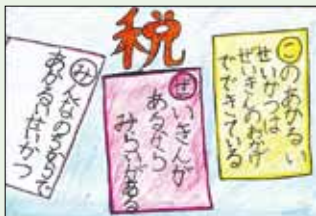 税
このあかるい
せいかつは
ぜいきんのおかげ
でできている
ぜいきんが
あるから
みらいがある
みんなのちからで
あかるいせいかつ